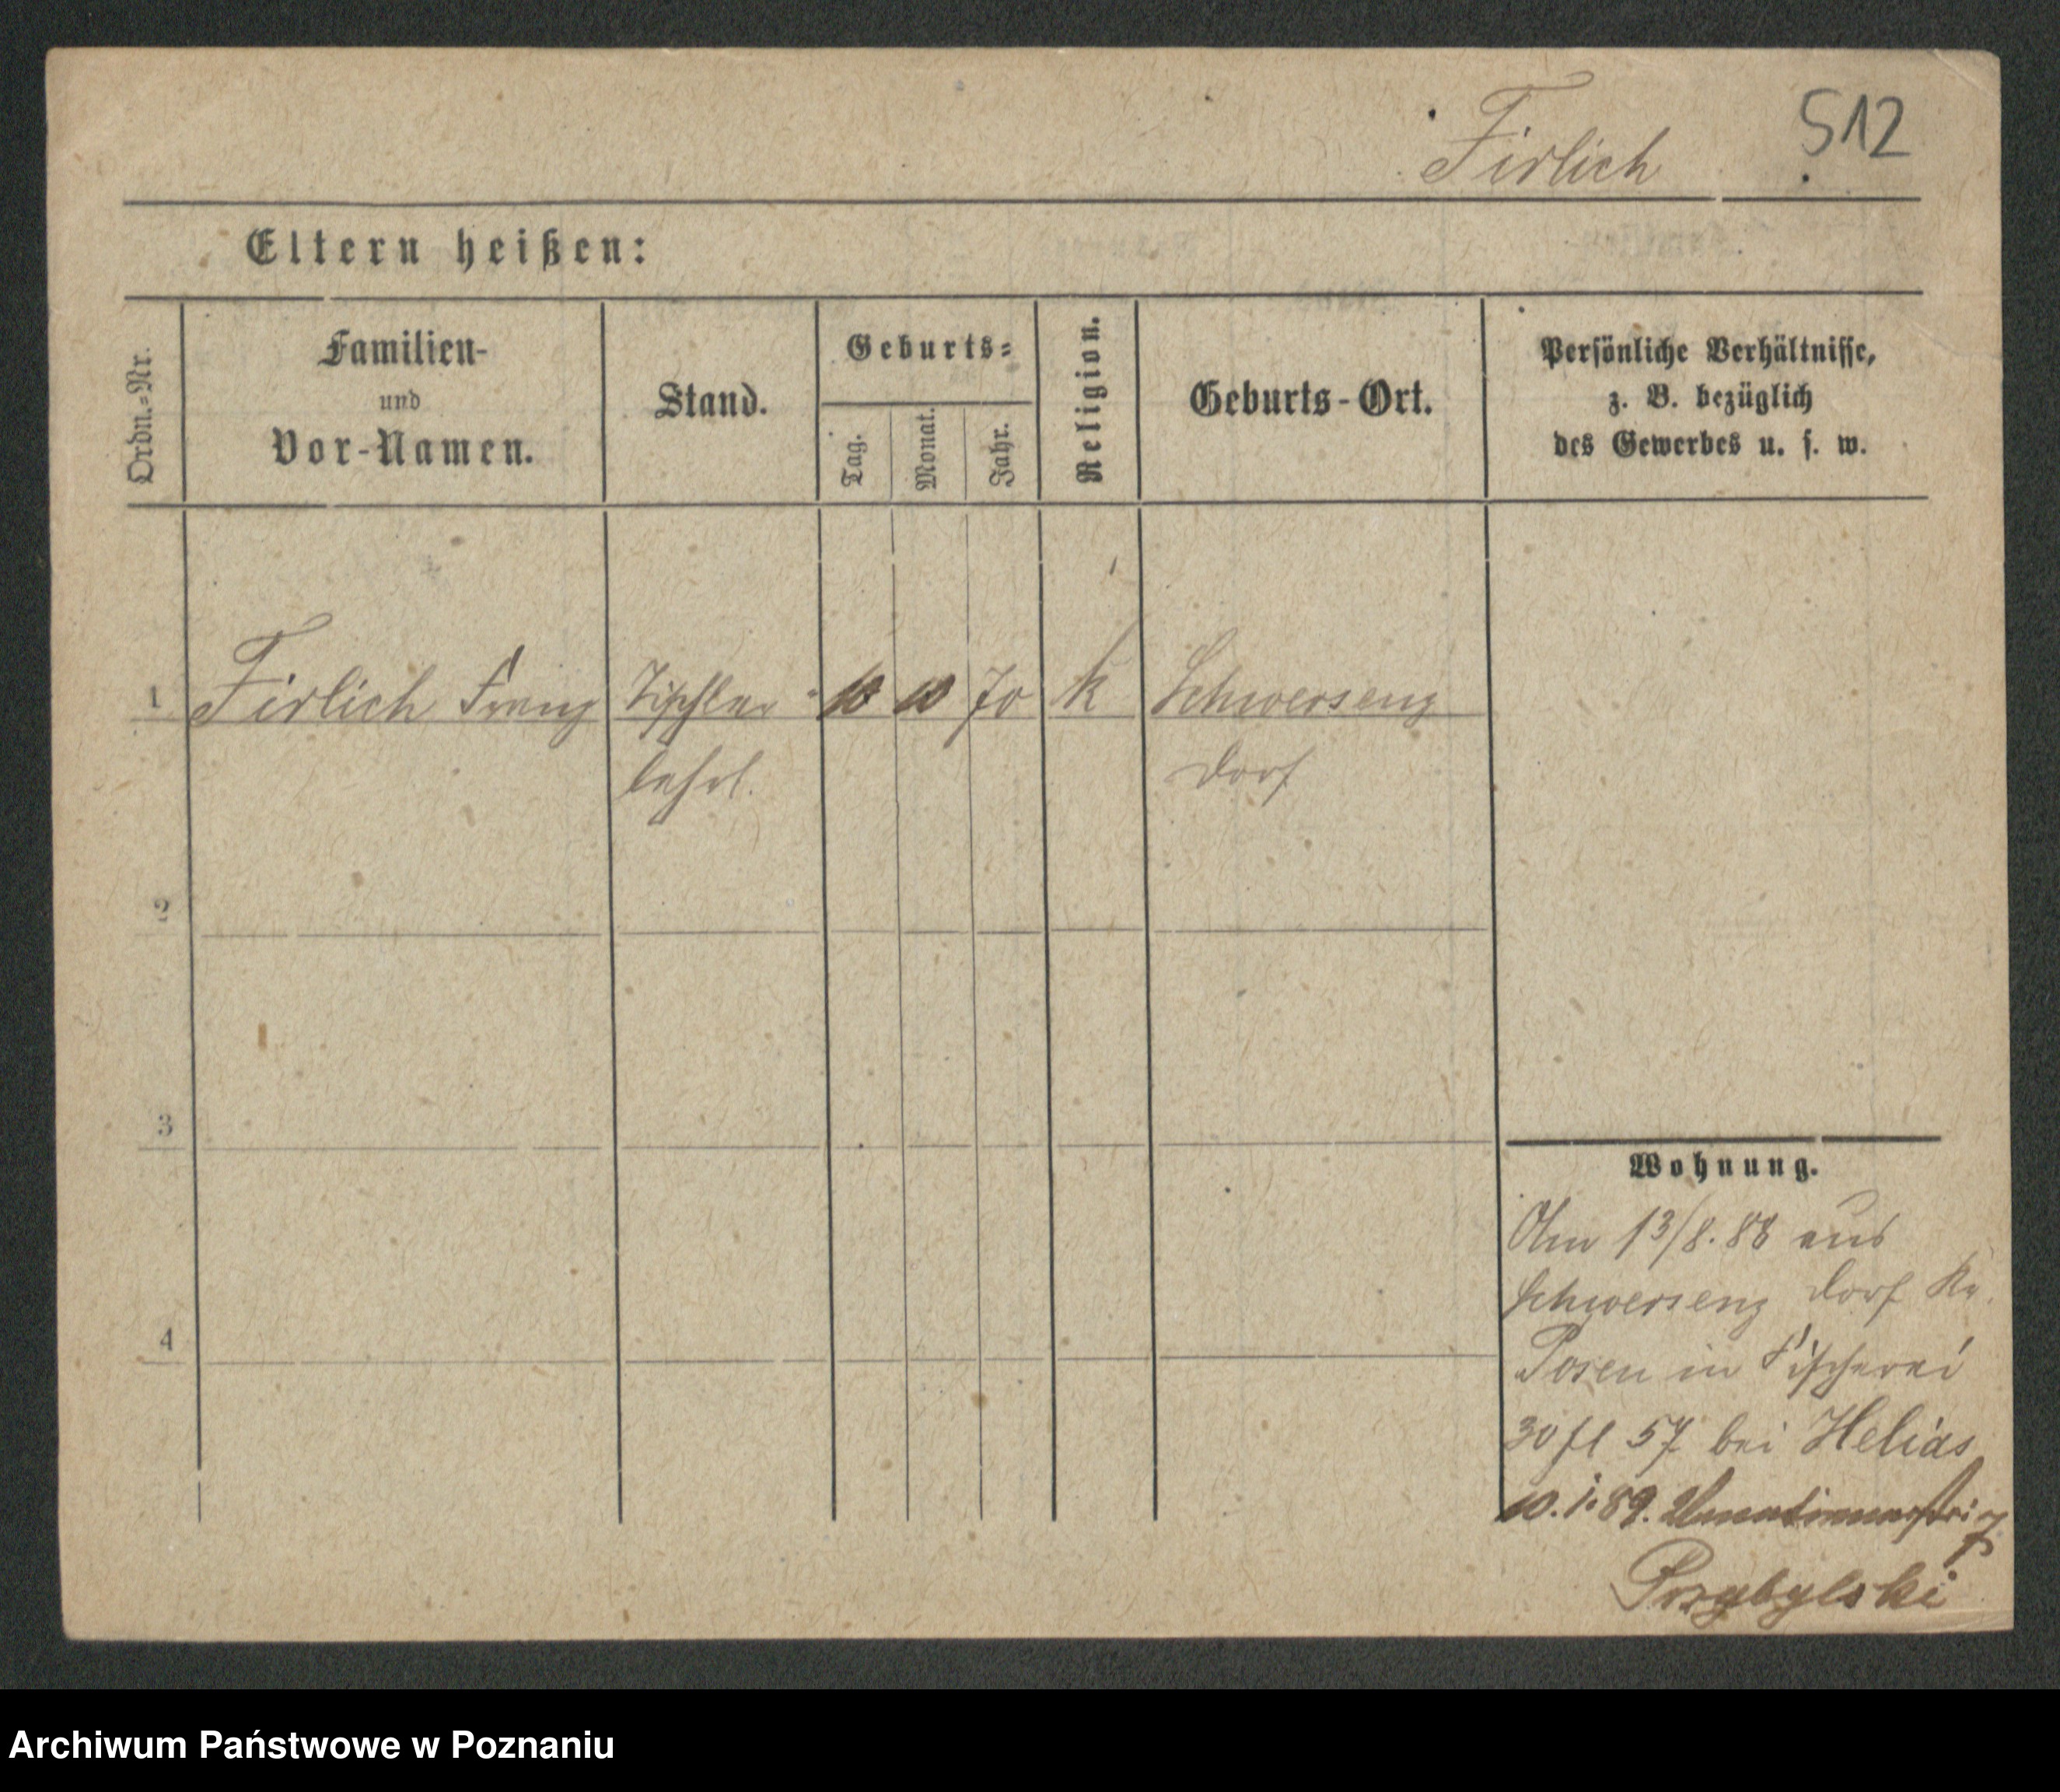 Firlich
512
Eltern heißen:
Ordn.-Nr.
Familien-
und
Vor-Namen.
Stand.
Geburts-
Tag.
Monat.
Jahr.
Religion.
Geburts-Ort.
Persönliche Verhältnisse,
z. B. bezüglich
des Gewerbes u. s. w.
1 Firlich Franz Tischler 10 10 70 k Schwersenz
lehrl. Dorf
2
3
4
Wohnung.
Am 13/8.88 aus
Schwersenz Dorf Kr.
Posen in Fischerei
57 bei Helias
10.1.89.
Przybylski
Archiwum Państwowe w Poznaniu